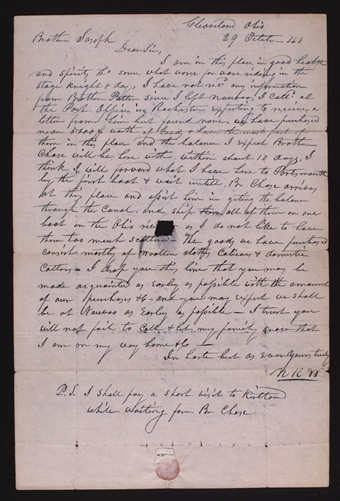 Cleveland Ohio
29 October 41
Brother Joseph
Dear Sir,
I am in this place in good health
and spirits tho some what worn for ware riding in the
stage knight & day, I have not no any information
from Brother Patten since I left Nauvoo, I call'd at
the Post Office in Rochester expecting to receive a
letter from him but found none. we have purchased
near $3000 worth of Good & have the most part of
them in this place and the balance I expect Brother
Chase will be here with, within about 10 days, I
think I will forward what I have here to Portsmouth
by the first boat & wait untill Br Chase arives
at this place and assist him in geting the balance
through the Canal, and ship them all up them on one
boat on the Ohio as I do not like to have
them too much scattered The goods we have purchased
consist mostly of Woollen cloths Calicoes & domestic
Cottons – I drop you this line that you may be
made acquainted as early as possible with the amount
of our purchases &c – and you may expect we shall
be at Nauvoo as early as possible – I trust you
will not fail to call & let my family know that
I am on my way home &c –
In haste but as ever Yours truly
N K W
P.S. I shall pay a short visit to Kirtland
while waiting for Br Chase